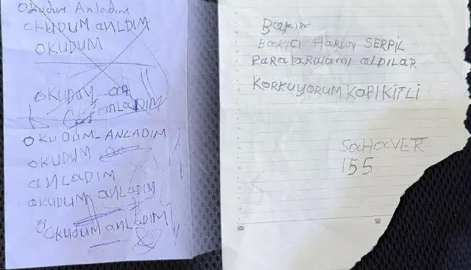 Okudum Anladım
OKUDUM ANLDIM
OKUDUM
OKUDUM
ANLADIM
OKUDUM-ANLADIM
OKUDUM
aNLADIM
OKUDUM aNLADIM
OKUDUM aNLADIM
Bakın
BAKICI HARUN SERPİL
PaRALARıMı aLDILAR
KORKUYORUM KAPI KİTLİ
155